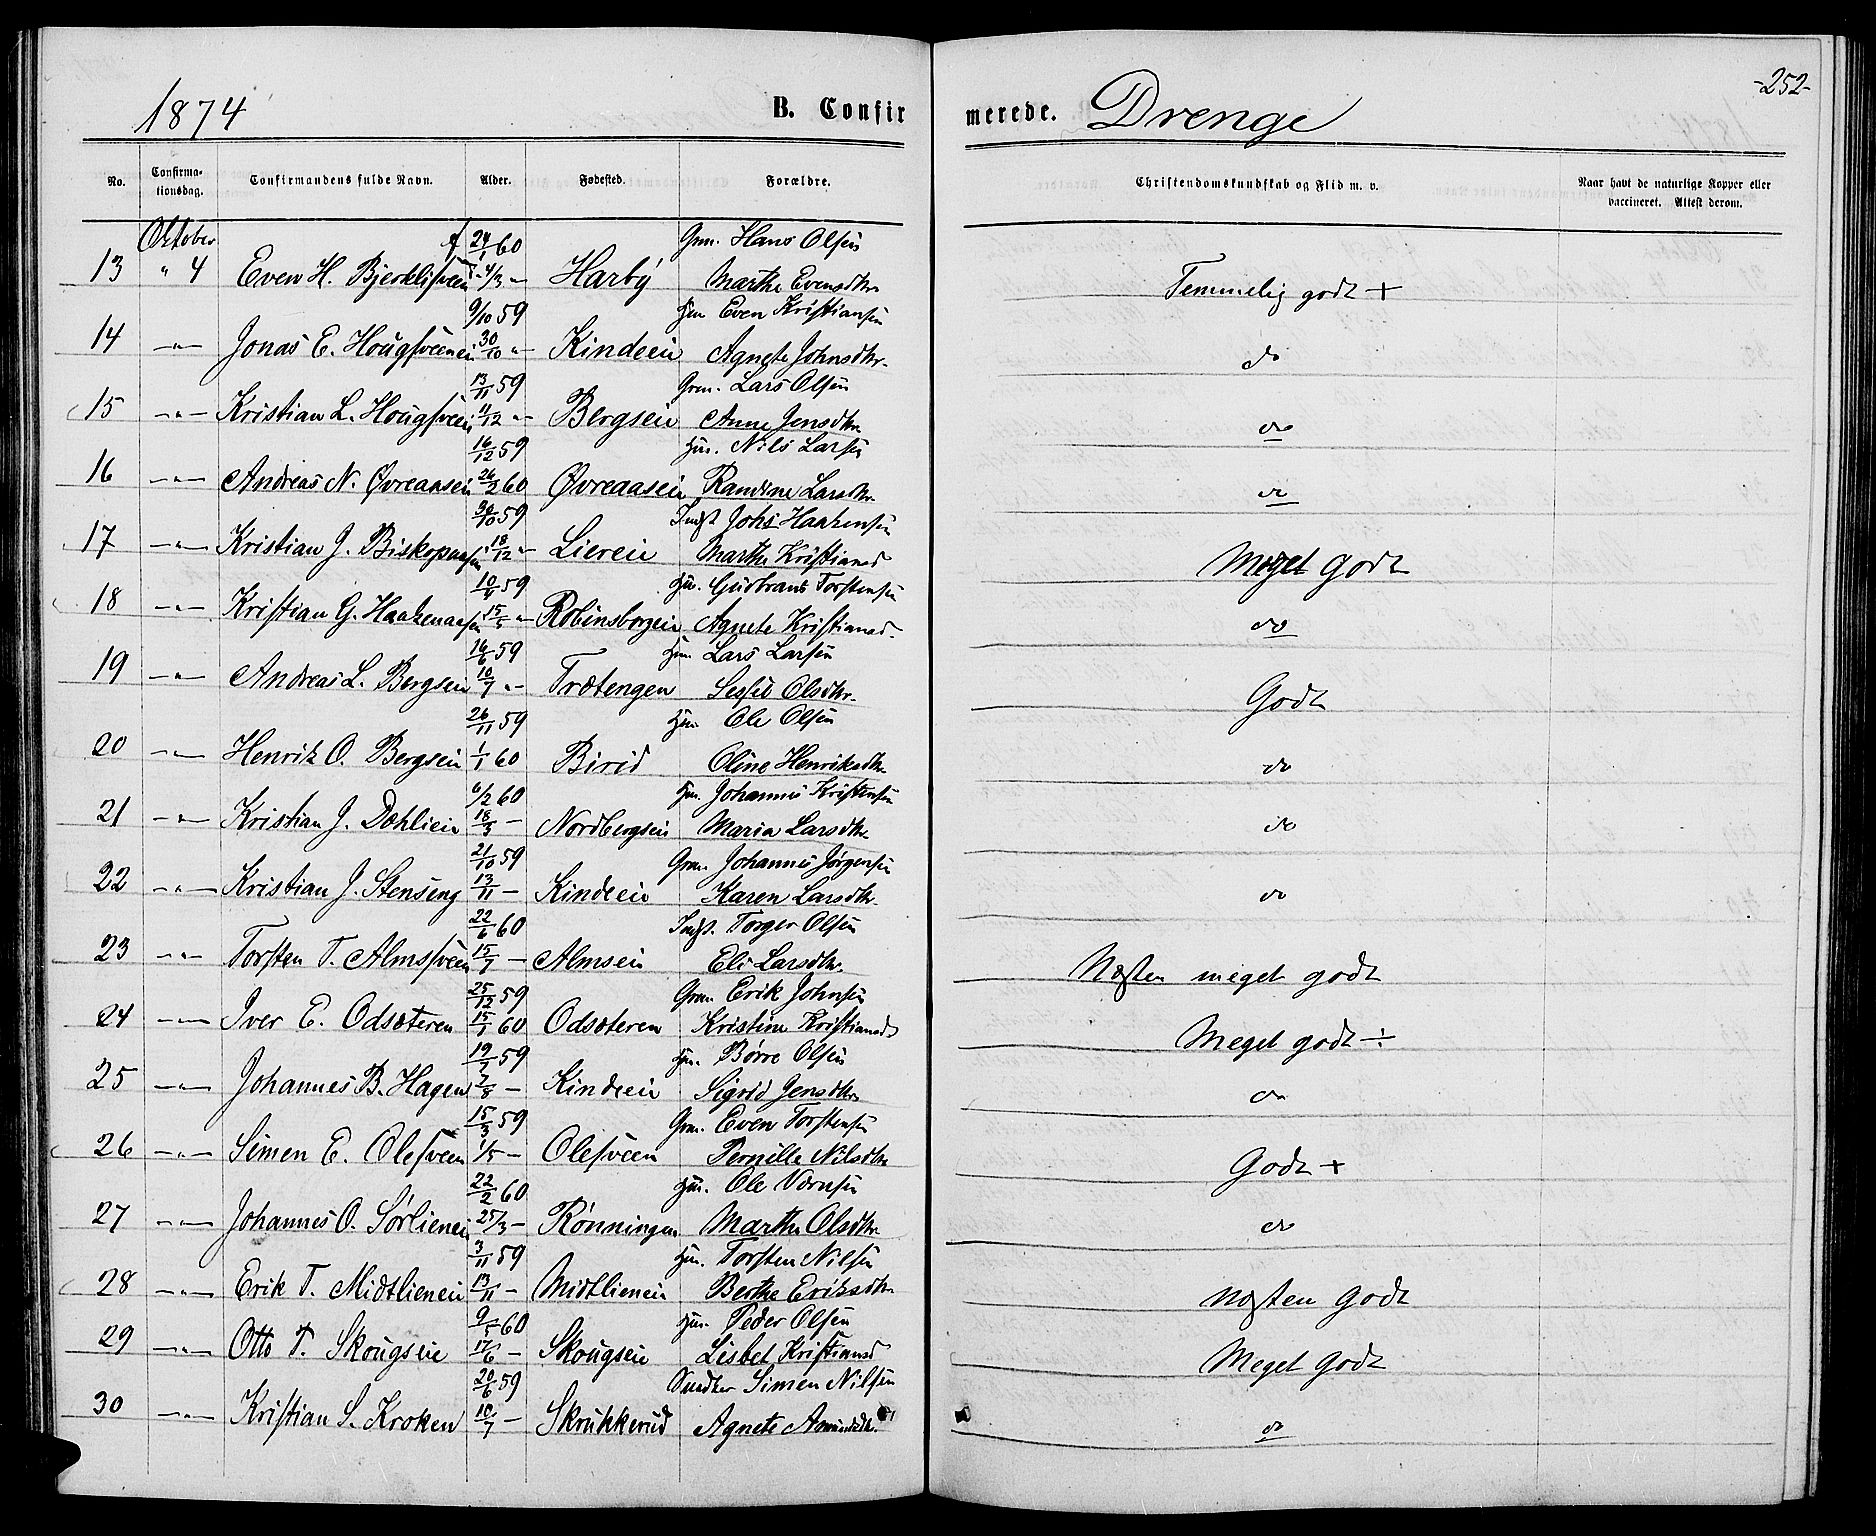 -252-
1874 B. Confirmerede. Drenge
No. Confirmationsdag. Confirmandens fulde Navn. Alder. Fødested. Forældre. Christendomskundskab og Flid m. v. Naar havt de naturlige Kopper eller vaccineret. Attest derom.
Oktober f 24/1 60 Gm. Hans Olsen
13 " 4 Even H. 4/3 - Harby Marthe Evensdtr. Temmelig godt +
9/10 59 Hm. Even Kristiansen
14 -"- Jonas E. Hougsveeneie 30/10 "- Kindeeie Agnete Johnsdtr. do
13/11 59 Grm. Lars Olsen
15 -"- Kristian L. Hougsveen 11/12 "- Bergseie Anne Jensdtr. do
16/12 59 Hm. Nils Larsen
16 -"- Andreas N. Øvreaaseie 26/2 60 Øvreaaseie Randine Larsdtr. do
30/10 59 Indst Johs Haakensen
17 -"- Kristian J. Biskopaasen 18/12 "- Liereie Marthe Kristiansd Meget godt
59 Hm. Gudbrand Torstensen
18 -"- Kristian G. Haakenaasen 15/5 "- Robinsborgeie Agnete Kristiansd. do
16/6 59 Hm. Lars Larsen
19 -"- Andreas L. Bergseie 10/7 "- Trætengen Olsdtr. Godt
26/11 59 Hm. Ole Olsen
20 -"- Henrik O. Bergseie 1/1 60 Birid Oline Henriksdtr. do
6/2 60 Hm. Johannes Kristensen
21 -"- Kristian J. Dæhlieie 18/3 - Nordbergseie Maria Larsdtr do
21/10 59 Grm. Johannes Jørgensen
22 -"- Kristian J. Stenseng 13/11 - Kindeeie Karen Larsdtr. do
22/6 60 Indst. Torger Olsen
23 -"- Torsten T. Almsveen 15/7 - Almseie Eli Larsdtr. Næsten meget godt
25/12 59 Grm. Erik Johnsen
24 -"- Iver E. Odsæteren 15/1 60 Odsæteren Kristine Kristiansd Meget godt ÷
19/7 59 Hm. Børre Olsen
25 -"- Johannes B. Hagen 7/8 - Kindeeie Sigrid Jensdtr do
15/3 59 Grm. Even Torstensen
26 -"- Simen E. Olesveen 1/5 - Olesveen Pernille Nilsdtr Godt +
22/2 60 Hm. Ole
27 -"- Johannes O. Sørlieneie 25/3 - Rønningen Marthe Olsdtr. do
3/11 59 Hm. Torsten Nilsen
28 -"- Erik T. Midtlieneie 13/11 - Midtlieneie Berthe Eriksdtr Næsten godt
9/5 60 Hm. Peder Olsen
29 -"- Otto P. Skougseie 17/6 - Skougseie Lisbet Kristiansd Meget godt
20/6 59 Snedker Simen Nilsen
30 -"- Kristian S. Kroken 10/7 - Skrukkerud Agnete Amundsdtr. do